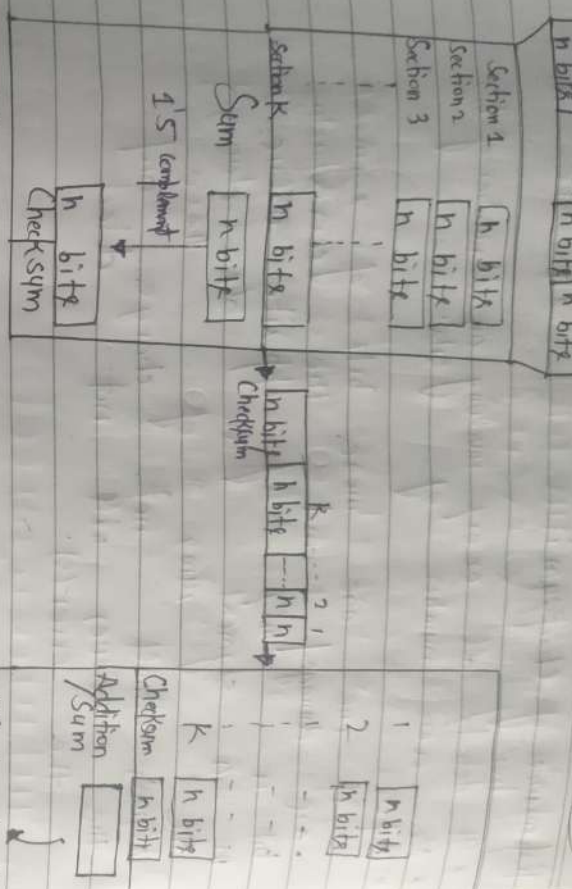 n bits n bits n bits
Section 1 n bits
Section 2 n bits
Section 3 n bits
Section K n bits
Sum n bits
1's complement
n bits
Checksum
K 2 1
n bits n bits n n
Checksum
1 n bits
2 n bits
K n bits
Checksum n bits
Addition
/Sum